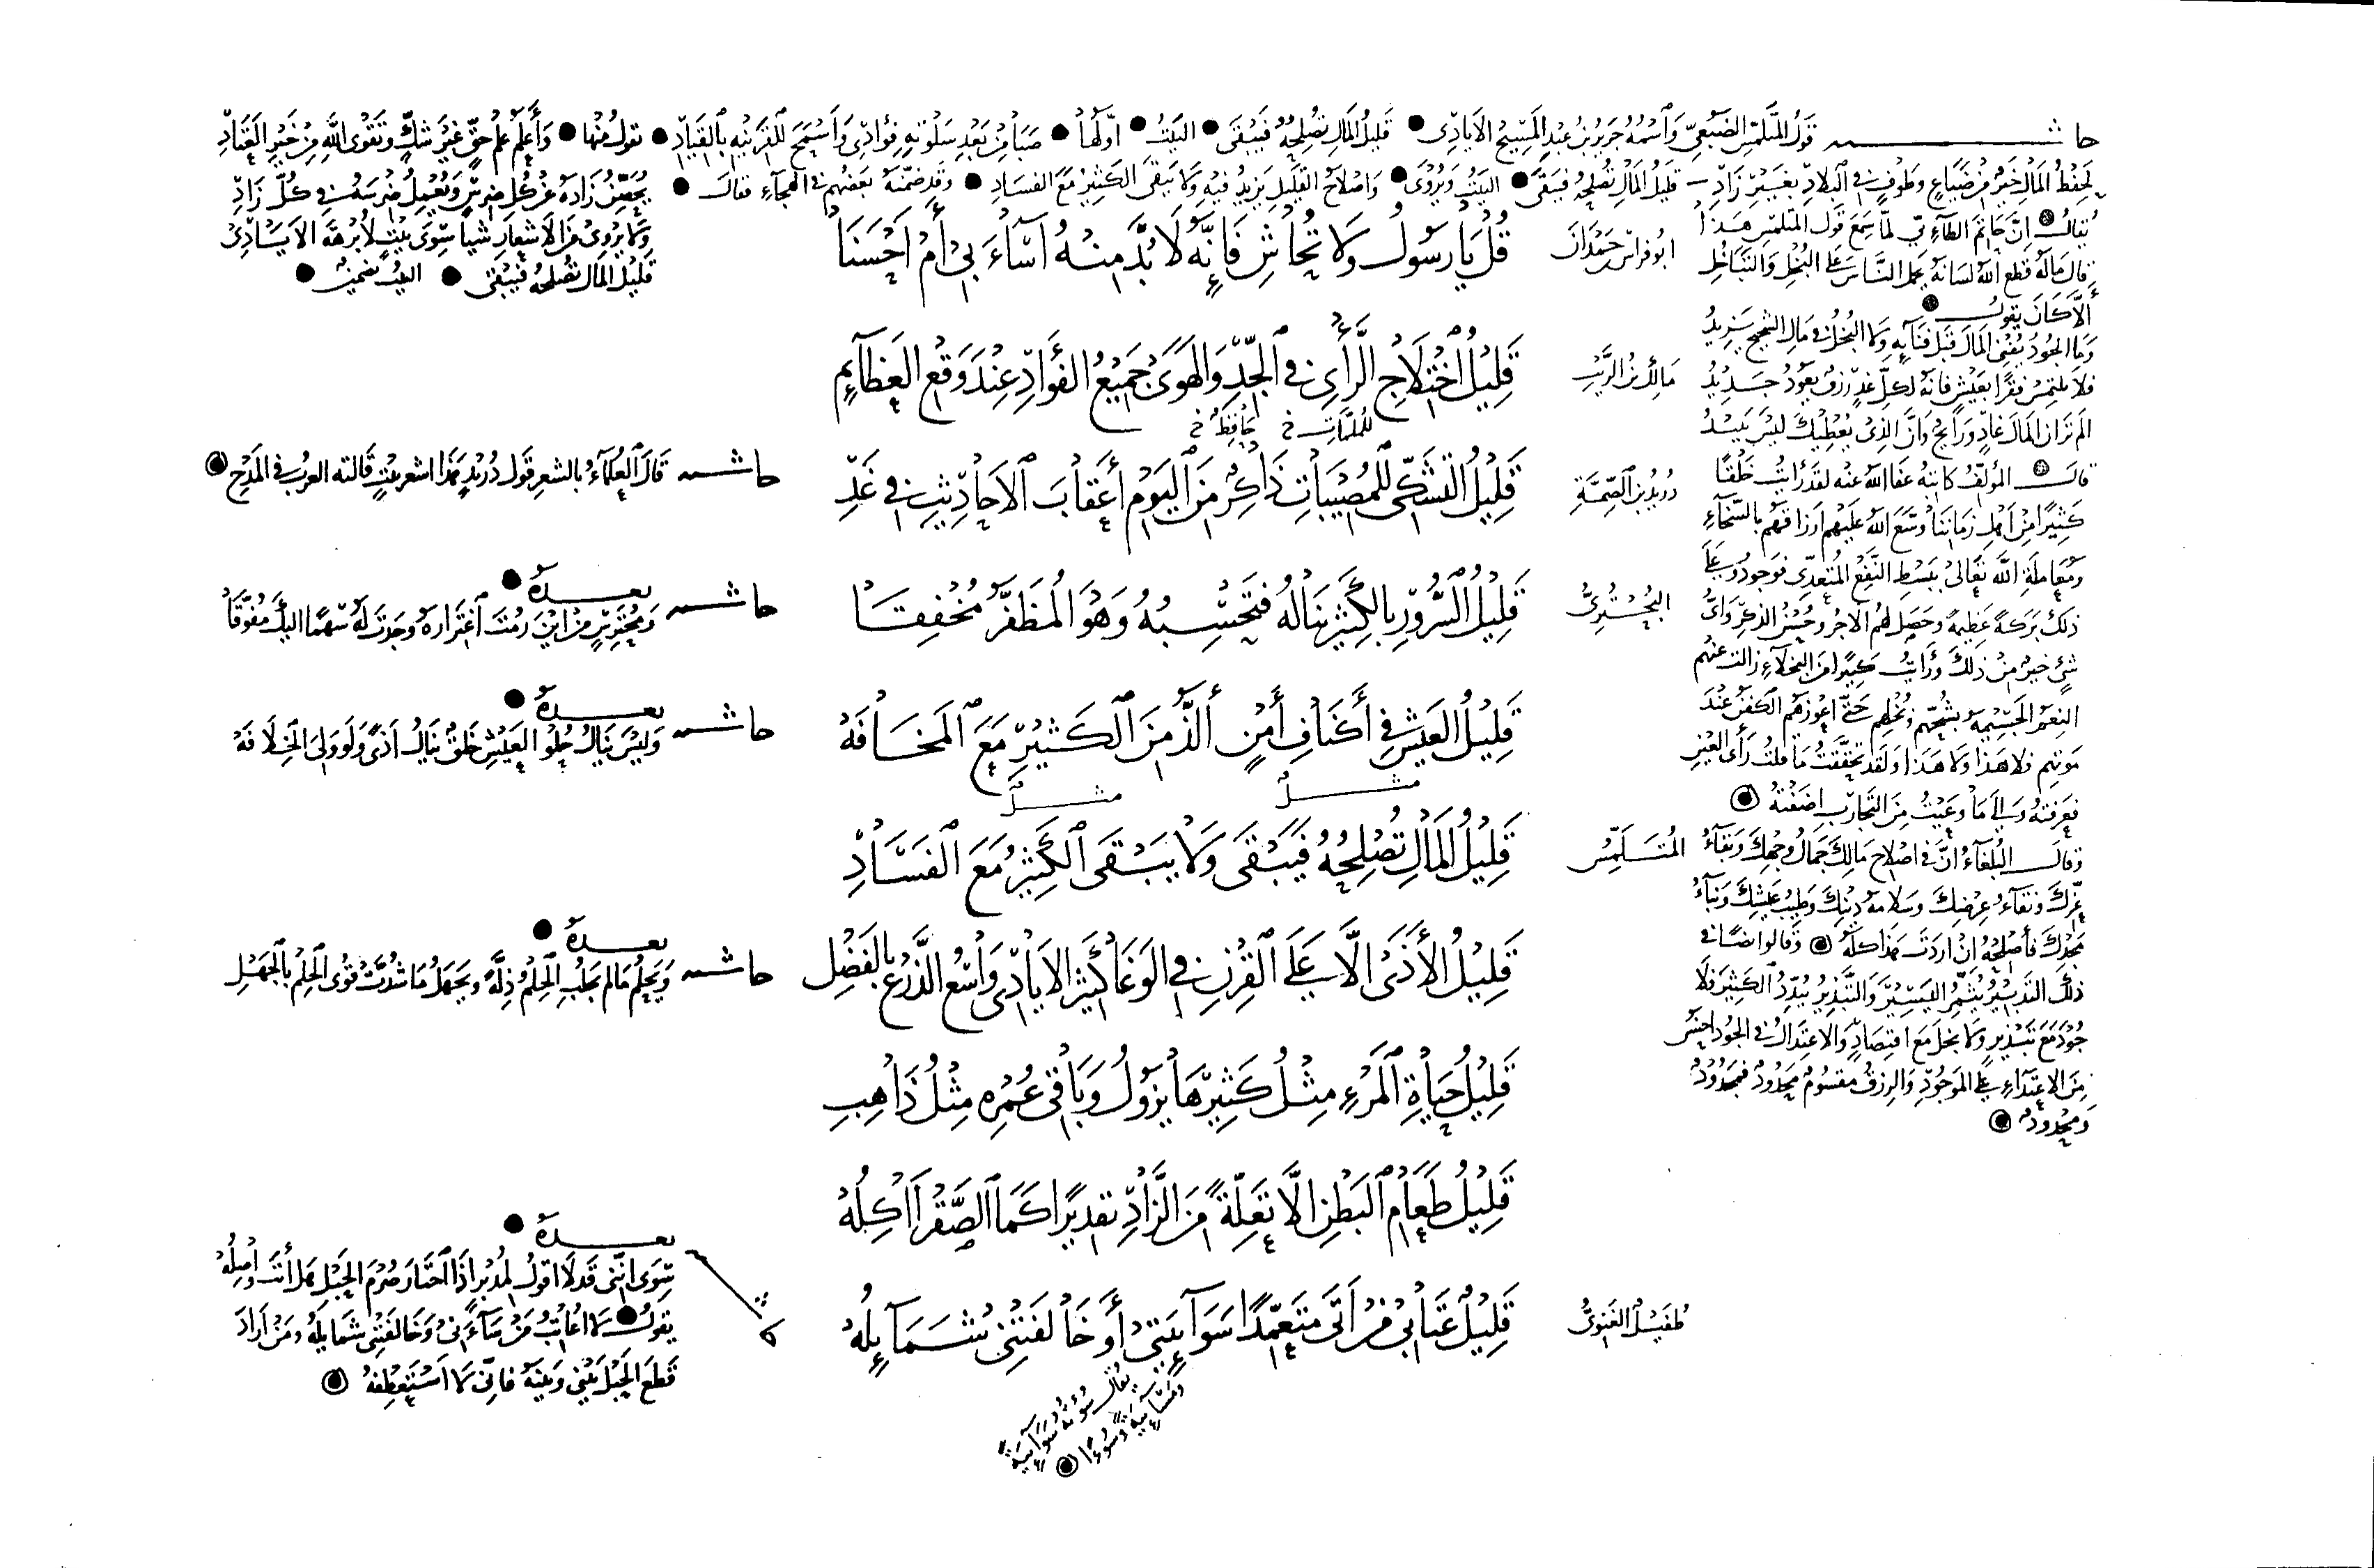 حاشية قول المتلمس الضبعي واسمه جرير بن عبد المسيح الأيادي قليل المال تصلحه فيبقى البيت أولها صبا من بعد سلوته فؤادي وأسمح للقرينة بالقياد يقول منها وأعلم علم حق غير شك وتقوى الله من خير العتاد
لحفظ المال خير من ضياع وطوف في البلاد بغير زاد قليل المال تصلحه فيبقى البيت ويروى وإصلاح القليل يزيد فيه ولا يبقى الكثير مع الفساد وقد ضمنه بعضهم في الهجاء فقال
يحصن زاده عن كل ضرس ويعمل ضرسه في كل زاد
ولا يروي من الأشعار شيئا سوى بيت لأبرهة الأيادي
قليل المال تصلحه فيبقى البيت تضمين
يقال إن حاتم الطائي لما سمع قول المتلمس هذا
قال ماله قطع الله لسانه يحمل الناس على البخل والتباخل
ألا كان يقول
وما الجود يفني المال قبل فنائه ولا البخل في مال الشحيح يزيد
فلا تلتمس فقرا بعيش فإنه لكل غد رزق يعود جديد
ألم تر أن المال غاد ورائح وأن الذي يعطيك ليس يبيد
قال المؤلف كاتبه عفا الله عنه لقد رأيت خلقا
كثيرا من أهل زماننا وسع الله عليهم أرزاقهم بالسخاء
ومعاملة الله تعالى ببسط النفع المتعدي فوجدوا على
ذلك بركة عظيمة وحصل لهم الأجر وحسن الذكر وأي
شيء خير من ذلك ورأيت كثيرا من البخلاء زالت عنهم
النعم الجسيمة بشحهم وبخلهم حتى أعوزهم الكفن عند
موتهم فلا هذا ولا هذا ولقد تحققت ما قلت رأي العين
فعرفته وإلى ما وعيت من التجارب أضفته
وقال البلغاء إن في إصلاح مالك جمال وجهك وبقاء
عزك ونقاء عرضك وسلامة دينك وطيب عيشك وبناء
مجدك فأصلحه إن أردت هذا كله وقالوا أيضا في
ذلك التدبير يثمر اليسير والتبذير يبدد الكثير فلا
جود مع تبذير ولا بخل مع اقتصاد والاعتدال في الجود أحسن
من الاعتداء على الموجود والرزق مقسوم محدود فمجدود
ومحدود
أبو فراس حمدان قل يا رسول ولا تحاش فإنه لا بد منه أساء بي أم أحسنا
مالك بن الريب قليل اختلاج الرأي في الجد والهوى جميع الفؤاد عند وقع العظائم
للملمات خ حافظ خ
دريد بن الصمة قليل التشكي للمصيبات ذاكر من اليوم أعقاب الأحاديث في غد
حاشية قال العلماء بالشعر قول دريد هذا أشعر بيت قالته العرب في المدح
البحتري قليل السرور بالكثير يناله فتحسبه وهو المظفر مخفقا
حاشية بعده
ومحترس من أين رمت اغتراره وجدت له سهما إليك مفوقا
قليل العيش في أكناف أمن ألذ من الكثير مع المخافه
حاشية بعده
وليس ينال حلو العيش خلق ينال أذى ولو ولي الخلافه
مثل مثل
المتلمس قليل المال تصلحه فيبقى ولا يبقى الكثير مع الفساد
قليل الأذى إلا على القرن في الوغا كثير الأيادي واسع الذرع بالفضل
حاشية بعده
ويحلم ما لم يجلب الحلم ذلة ويجهل ما شدت قوى الحلم بالجهل
قليل حياة المرء مثل كثيرها يزول وباقي عمره مثل ذاهب
قليل طعام البطن إلا تعلة من الزاد تقديرا كما الصقر آكله
طفيل الغنوي قليل عتابي من أتى متعمدا سوائيتي أو خالفتني شمائله
بعده
سوى أنني قد لا أقول لمدبر إذا اختار صرم الحبل هل أنت واصله
يقول لا أعاتب من ساءني وخالفتني شمائله ومن أراد
قطع الحبل بيني وبينه فإني لا أستعطفه
يقال سؤته سوائية
ومسائية وسوءا